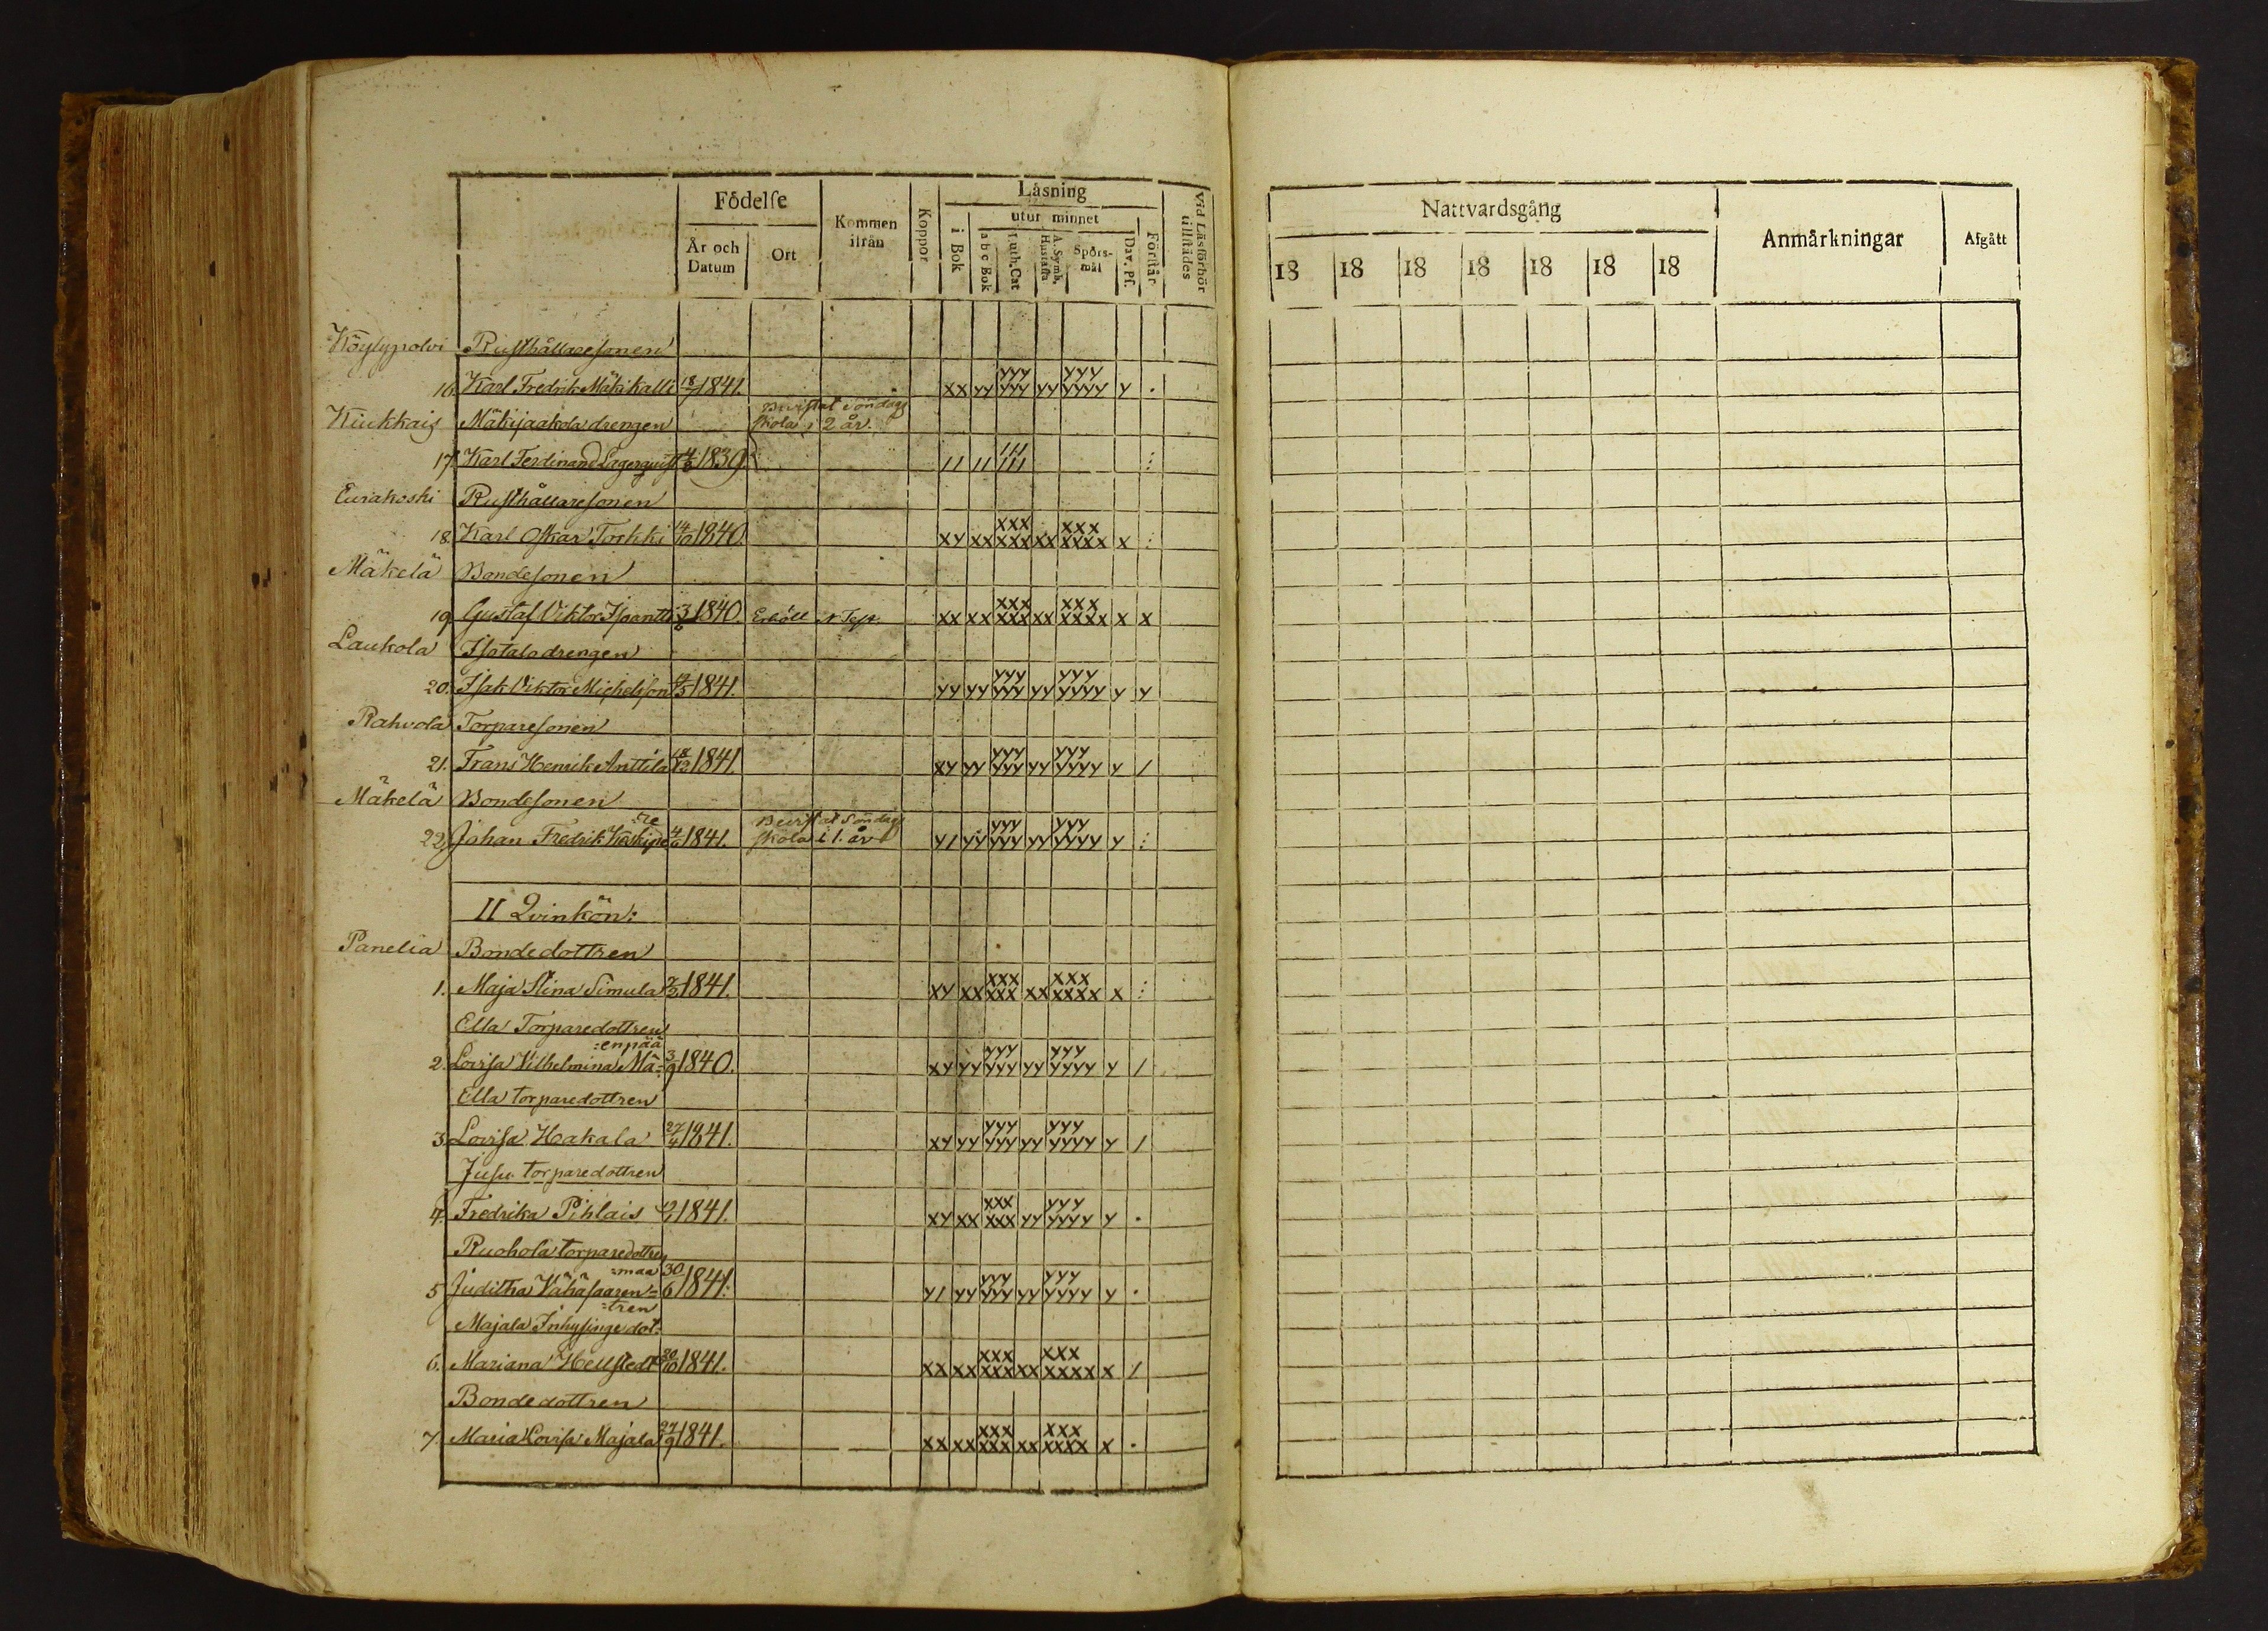 Födelſe
Kommen ifrån
Koppor
Läsning
Vid Läsförhör tillſtädes
År och Datum
Ort
i Bok
utur minnet
a b c Bok
Luth. Cat
A. Symb. Huſtafla
Spörs-mål
Dav. Pſ.
Förſtår
Nattvardsgång
Anmärkningar
Afgått
18 18 18 18 18 18 18
Köylypolvi Rusthållaresonen
16. Karl Fredrik Mäkikalli 18/7 1841. xx yy yyy yyy yy yyy yyyy y .
Kiukkais Mäkijaakola drengen Bevistat Söndags
skola i 2 år.
17. Karl Ferdinand Lagerquist 1839. 11 11 111 111
Eurakoski Rusthållaresonen
18. Karl Oskar Torkki 14/10 1840. xy xx xxx xxx xx xxx xxxx x
Mäkelä Bondesonen
19. Gustaf Viktor Ipantti 1840. Erhöll N. Test. xx xx xxx xxx xx xxx xxxx x x
Laukola Isotalo drengen
20. Isak Viktor Michelsson 1841. yy yy yyy yyy yy yyy yyyy y y
Rahvola Torparesonen
21. Frans Henrik Anttila 18/12 1841. xy yy yyy yyy yy yyy yyyy y /
Mäkelä Bondesonen
22. Johan Fredrik 1841. Bevistat Söndags
skola i 1. år y1 yy yyy yyy yy yyy yyyy y
II Qvinkön:
Panelia Bondedottren
1. Maja Stina Simula 1841. xy xx xxx xxx xx xxx xxxx x
Ella Torparedottren
2. Lovisa Vilhelmina Mä-
:enpää 3/9 1840. xy yy yyy yyy yy yyy yyyy y /
Ella torparedottren
3. Lovisa Hakala 27/4 1841. xy yy yyy yyy yy yyy yyyy y /
Jusu torparedottren
4. Fredrika Pihlais 1841. xy xx xxx xxx yy yyy yyyy y .
Ruohola torparedottren
5 Juditha Vähäsaaren-
:maa 30/6 1841. y1 yy yyy yyy yy yyy yyyy y .
Majala Inhysinge dot-
:tren
6. Mariana Hellstedt 20/10 1841. xx xx xxx xxx xx xxx xxxx x /
Bondedottren
7. Maria Lovisa Majala 1841. xx xx xxx xxx xx xxx xxxx x .